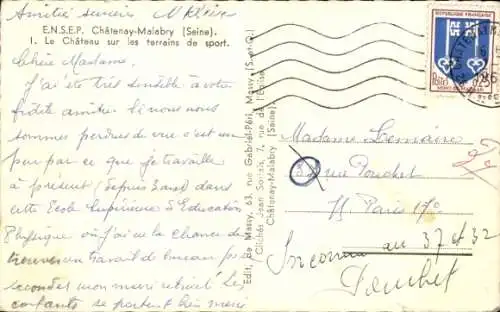 Amitié sincère
E.N.S.E.P. Châtenay-Malabry (Seine).
1. Le Château sur les terrains de sport.
Chère Madame,
J'ai été très sensible à votre
fidèle amitié. Si nous nous
sommes perdues de vue c'est un
peu par ce que je travaille
à présent (depuis 3 ans) dans
cette Ecole Supérieure d'Education
Physique où j'ai eu la chance de
trouver un travail de bureau pour
seconder mon mari retraité. Les
enfants se portent bien
Edit. de Massy, 63, rue Gabriel-Péri, Massy (S.-et-O.)
Clichés Jean Soulais, 7, rue de l'Eglise
Châtenay-Malabry (Seine)
REPUBLIQUE FRANÇAISE
POSTES
MONT-DE-MARSAN
Madame Lemaire
rue Pouchet
75 Paris 17e
Inconnu au 37 et 32
Pouchet